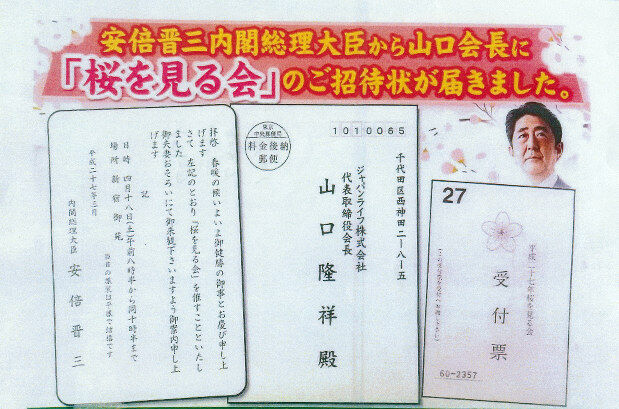 安倍晋三内閣総理大臣から山口会長に
「桜を見る会」のご招待状が届きました。
拝啓 春暖の候いよいよ御健勝の御事とお慶び申し上
げます
さて 左記のとおり「桜を見る会」を催すことといたし
ました
御夫妻おそろいにて御来観下さいますよう御案内申し上
げます
記
日時 四月十八日(土)午前八時半から同十時半まで
場所 新宿御苑
平成二十七年三月
内閣総理大臣 安倍晋三
当日の服装は平服で結構です
東京
中央郵便局
料金後納
郵便
1010065
千代田区西神田二ー八ー五
ジャパンライフ株式会社
代表取締役会長
山口隆祥殿
27
平成二十七年桜を見る会
受付票
60-2357